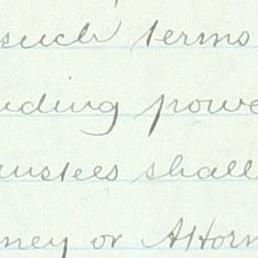 such terms
uding powe
rustees shall
ney or Attorn